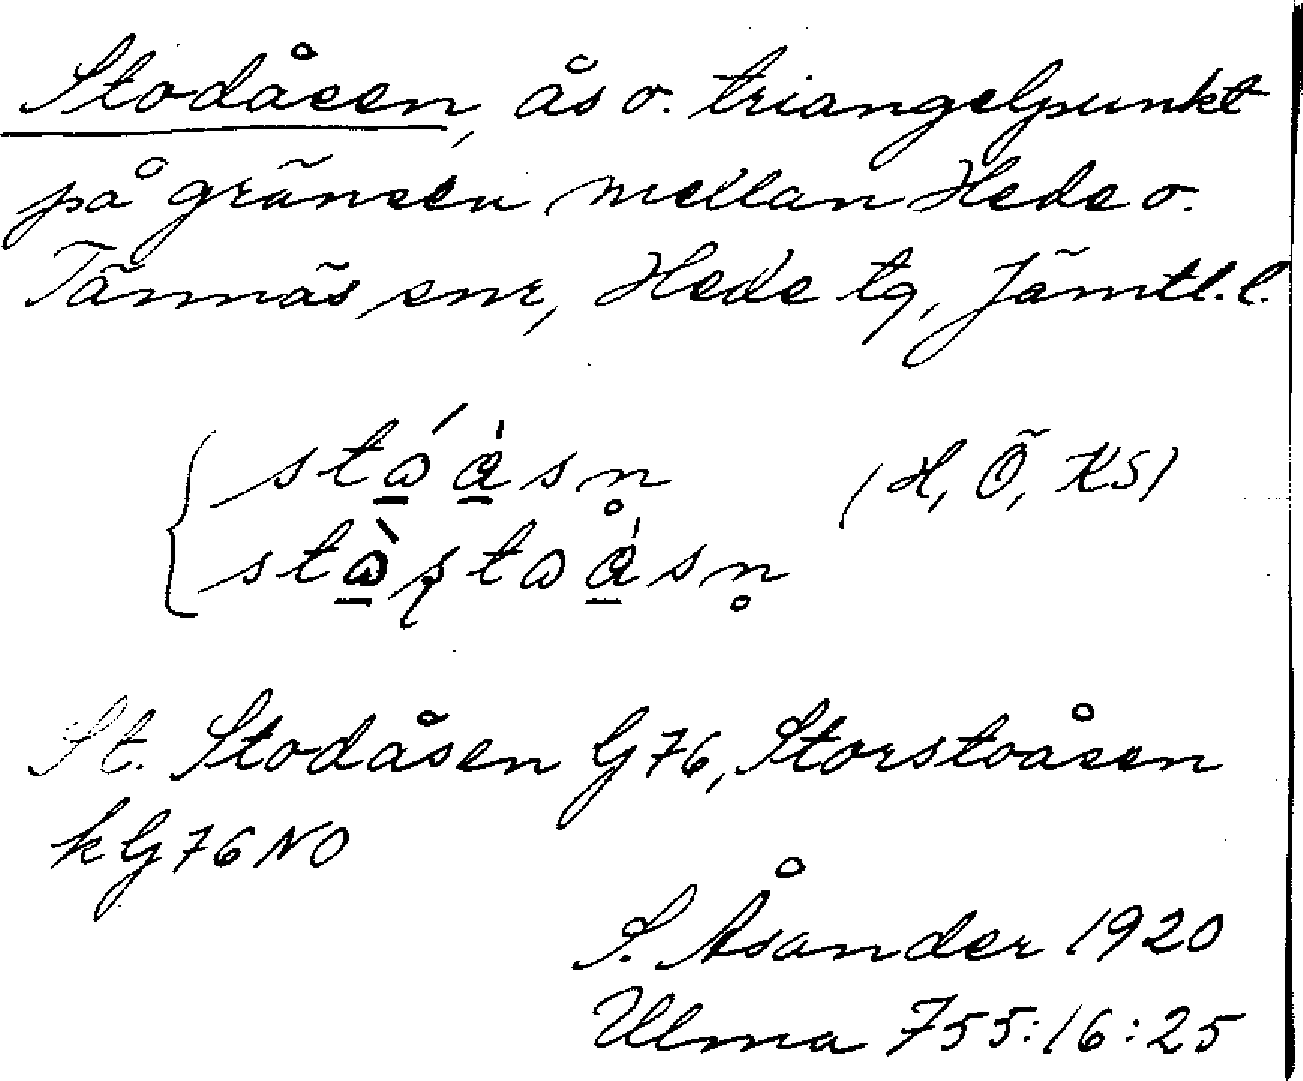 Stodåsen, ås o. triangelpunkt
på gränsen mellan Hede o.
Tännäs snr, Hede tg, Jämtl. l.
(H, Ö, KS)
St. Stodåsen G 76, Storstoåsen
k G 76 NO
S. Åsander 1920
Ulma 755:16:25